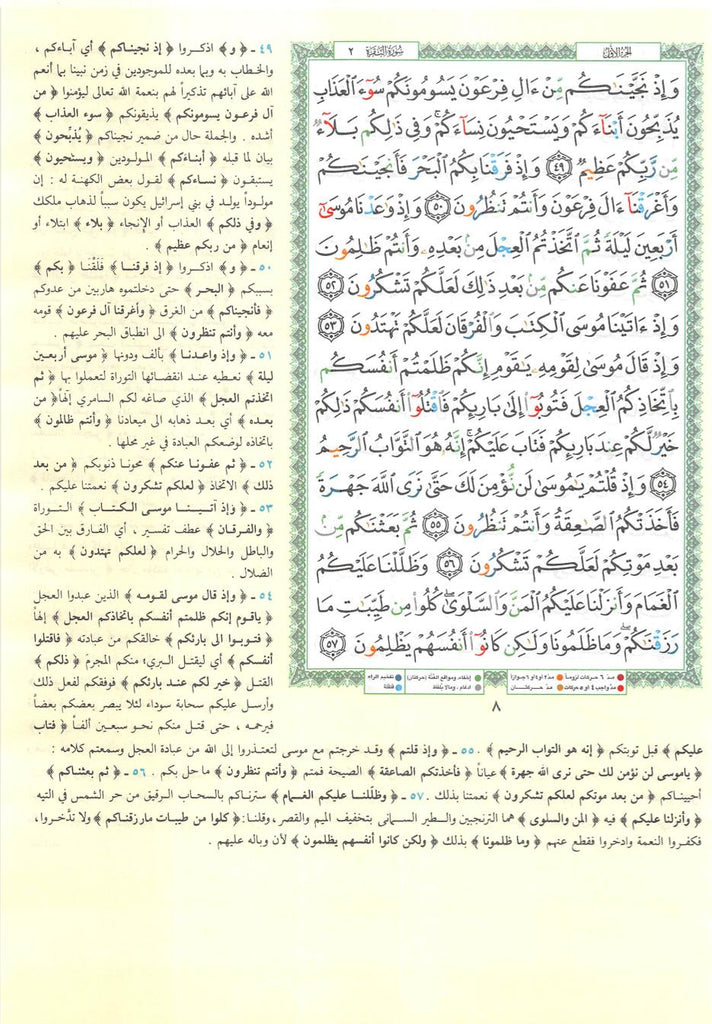 الجزء الأول
سورة البقرة ٢
وَإِذْ نَجَّيْنَـٰكُم مِّنْ ءَالِ فِرْعَوْنَ يَسُومُونَكُمْ سُوٓءَ ٱلْعَذَابِ
يُذَبِّحُونَ أَبْنَآءَكُمْ وَيَسْتَحْيُونَ نِسَآءَكُمْ ۚ وَفِى ذَٰلِكُم بَلَآءٌ
مِّن رَّبِّكُمْ عَظِيمٌ ٤٩ وَإِذْ فَرَقْنَا بِكُمُ ٱلْبَحْرَ فَأَنجَيْنَـٰكُمْ
وَأَغْرَقْنَآ ءَالَ فِرْعَوْنَ وَأَنتُمْ نَنظُرُونَ ٥٠ وَإِذْ وَٰعَدْنَا مُوسَىٰٓ
أَرْبَعِينَ لَيْلَةً ثُمَّ ٱتَّخَذْتُمُ ٱلْعِجْلَ مِنۢ بَعْدِهِۦ وَأَنتُمْ ظَـٰلِمُونَ
٥١ ثُمَّ عَفَوْنَا عَنكُم مِّنۢ بَعْدِ ذَٰلِكَ لَعَلَّكُمْ تَشْكُرُونَ ٥٢
وَإِذْ ءَاتَيْنَا مُوسَى ٱلْكِتَـٰبَ وَٱلْفُرْقَانَ لَعَلَّكُمْ تَهْتَدُونَ ٥٣
وَإِذْ قَالَ مُوسَىٰ لِقَوْمِهِۦ يَـٰقَوْمِ إِنَّكُمْ ظَلَمْتُمْ أَنفُسَكُم
بِٱتِّخَاذِكُمُ ٱلْعِجْلَ فَتُوبُوٓا۟ إِلَىٰ بَارِئِكُمْ فَٱقْتُلُوٓا۟ أَنفُسَكُمْ ذَٰلِكُمْ
خَيْرٌ لَّكُمْ عِندَ بَارِئِكُمْ فَتَابَ عَلَيْكُمْ ۚ إِنَّهُۥ هُوَ ٱلتَّوَّابُ ٱلرَّحِيمُ
٥٤ وَإِذْ قُلْتُمْ يَـٰمُوسَىٰ لَن نُّؤْمِنَ لَكَ حَتَّىٰ نَرَى ٱللَّهَ جَهْرَةً
فَأَخَذَتْكُمُ ٱلصَّـٰعِقَةُ وَأَنتُمْ تَنظُرُونَ ٥٥ ثُمَّ بَعَثْنَـٰكُم مِّنۢ
بَعْدِ مَوْتِكُمْ لَعَلَّكُمْ تَشْكُرُونَ ٥٦ وَظَلَّلْنَا عَلَيْكُمُ
ٱلْغَمَامَ وَأَنزَلْنَا عَلَيْكُمُ ٱلْمَنَّ وَٱلسَّلْوَىٰ ۖ كُلُوا۟ مِن طَيِّبَـٰتِ مَا
رَزَقْنَـٰكُمْ ۖ وَمَا ظَلَمُونَا وَلَـٰكِن كَانُوٓا۟ أَنفُسَهُمْ يَظْلِمُونَ ٥٧
مدّ ٦ حركات لزوماً مدّ ٢ أو ٤ أو ٦ جوازاً إخفاء، ومواقع الغنّة (حركتان) تفخيم الراء
مدّ واجب ٤ أو ٥ حركات مدّ حركتان ادغام، وما لا يُلفظ قلقلة
٨
٤٩ ـ ﴿ و ﴾ اذكروا ﴿ إذ نجيناكم ﴾ أي آباءكم ،
والخطاب به وبما بعده للموجودين في زمن نبينا بما أنعم
الله على آبائهم تذكيراً لهم بنعمة الله تعالى ليؤمنوا ﴿ من
آل فرعون يسومونكم ﴾ يذيقونكم ﴿ سوء العذاب ﴾
أشده . والجملة حال من ضمير نجيناكم ﴿ يُذبّحون ﴾
بيان لما قبله ﴿ أبناءكم ﴾ المولودين ﴿ ويستحيون ﴾
يستبقون ﴿ نساءكم ﴾ لقول بعض الكهنة له : إن
مولوداً يولد في بني إسرائيل يكون سبباً لذهاب ملكك
﴿ وفي ذلكم ﴾ العذاب أو الإنجاء ﴿ بلاء ﴾ ابتلاء أو
إنعام ﴿ من ربكم عظيم ﴾ .
٥٠ ـ ﴿ و ﴾ اذكروا ﴿ إذ فرقنا ﴾ فَلَقْنَا ﴿ بكم ﴾
بسببكم ﴿ البحر ﴾ حتى دخلتموه هاربين من عدوكم
﴿ فأنجيناكم ﴾ من الغرق ﴿ وأغرقنا آل فرعون ﴾ قومه
معه ﴿ وأنتم تنظرون ﴾ الى انطباق البحر عليهم .
٥١ ـ ﴿ وإذ واعدنا ﴾ بألف ودونها ﴿ موسى أربعين
ليلة ﴾ نعطيه عند انقضائها التوراة لتعملوا بها ﴿ ثم
اتخذتم العجل ﴾ الذي صاغه لكم السامري إلهاً ﴿ من
بعده ﴾ أي بعد ذهابه الى ميعادنا ﴿ وأنتم ظالمون ﴾
باتخاذه لوضعكم العبادة في غير محلها .
٥٢ ـ ﴿ ثم عفونا عنكم ﴾ محونا ذنوبكم ﴿ من بعد
ذلك ﴾ الاتخاذ ﴿ لعلكم تشكرون ﴾ نعمتنا عليكم .
٥٣ ـ ﴿ وإذ آتينا موسى الكتاب ﴾ التوراة
﴿ والفرقان ﴾ عطف تفسير ، أي الفارق بين الحق
والباطل والحلال والحرام ﴿ لعلكم تهتدون ﴾ به من
الضلال .
٥٤ ـ ﴿ وإذ قال موسى لقومه ﴾ الذين عبدوا العجل
﴿ ياقوم إنكم ظلمتم أنفسكم باتخاذكم العجل ﴾ إلهاً
﴿ فتوبوا الى بارئكم ﴾ خالقكم من عبادته ﴿ فاقتلوا
أنفسكم ﴾ أي ليقتل البريء منكم المجرمَ ﴿ ذلكم ﴾
القتل ﴿ خير لكم عند بارئكم ﴾ فوفقكم لفعل ذلك
وأرسل عليكم سحابة سوداء لئلا يبصر بعضكم بعضاً
فيرحمه ، حتى قتل منكم نحو سبعين ألفاً ﴿ فتاب
عليكم ﴾ قبل توبتكم ﴿ إنه هو التواب الرحيم ﴾ . ٥٥ ـ ﴿ وإذ قلتم ﴾ وقد خرجتم مع موسى لتعتذروا إلى الله من عبادة العجل وسمعتم كلامه :
﴿ ياموسى لن نؤمن لك حتى نرى الله جهرة ﴾ عياناً ﴿ فأخذتكم الصاعقة ﴾ الصيحة فمتم ﴿ وأنتم تنظرون ﴾ ما حل بكم . ٥٦ ـ ﴿ ثم بعثناكم ﴾
أحييناكم ﴿ من بعد موتكم لعلكم تشكرون ﴾ نعمتنا بذلك . ٥٧ ـ ﴿ وظلّلنا عليكم الغمام ﴾ سترناكم بالسحاب الرقيق من حر الشمس في التيه
﴿ وأنزلنا عليكم ﴾ فيه ﴿ المن والسلوى ﴾ هما الترنجبين والطير السماني بتخفيف الميم والقصر، وقلنا: ﴿ كلوا من طيبات مارزقناكم ﴾ ولا تدَّخروا،
فكفروا النعمة وادخروا فقطع عنهم ﴿ وما ظلمونا ﴾ بذلك ﴿ ولكن كانوا أنفسهم يظلمون ﴾ لأن وباله عليهم .